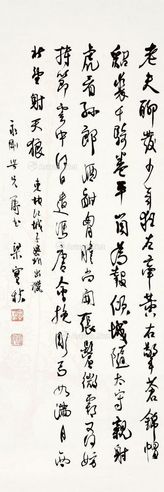 老夫聊發少年狂左牽黃右擎蒼錦帽
貂裘千騎卷平岡為報傾城隨太守親射
虎看孫郎酒酣胸膽尚開張鬢微霜又何妨
持節雲中何日遣馮唐會挽雕弓如滿月西
北望射天狼 東坡江城子密州出獵
梁實秋